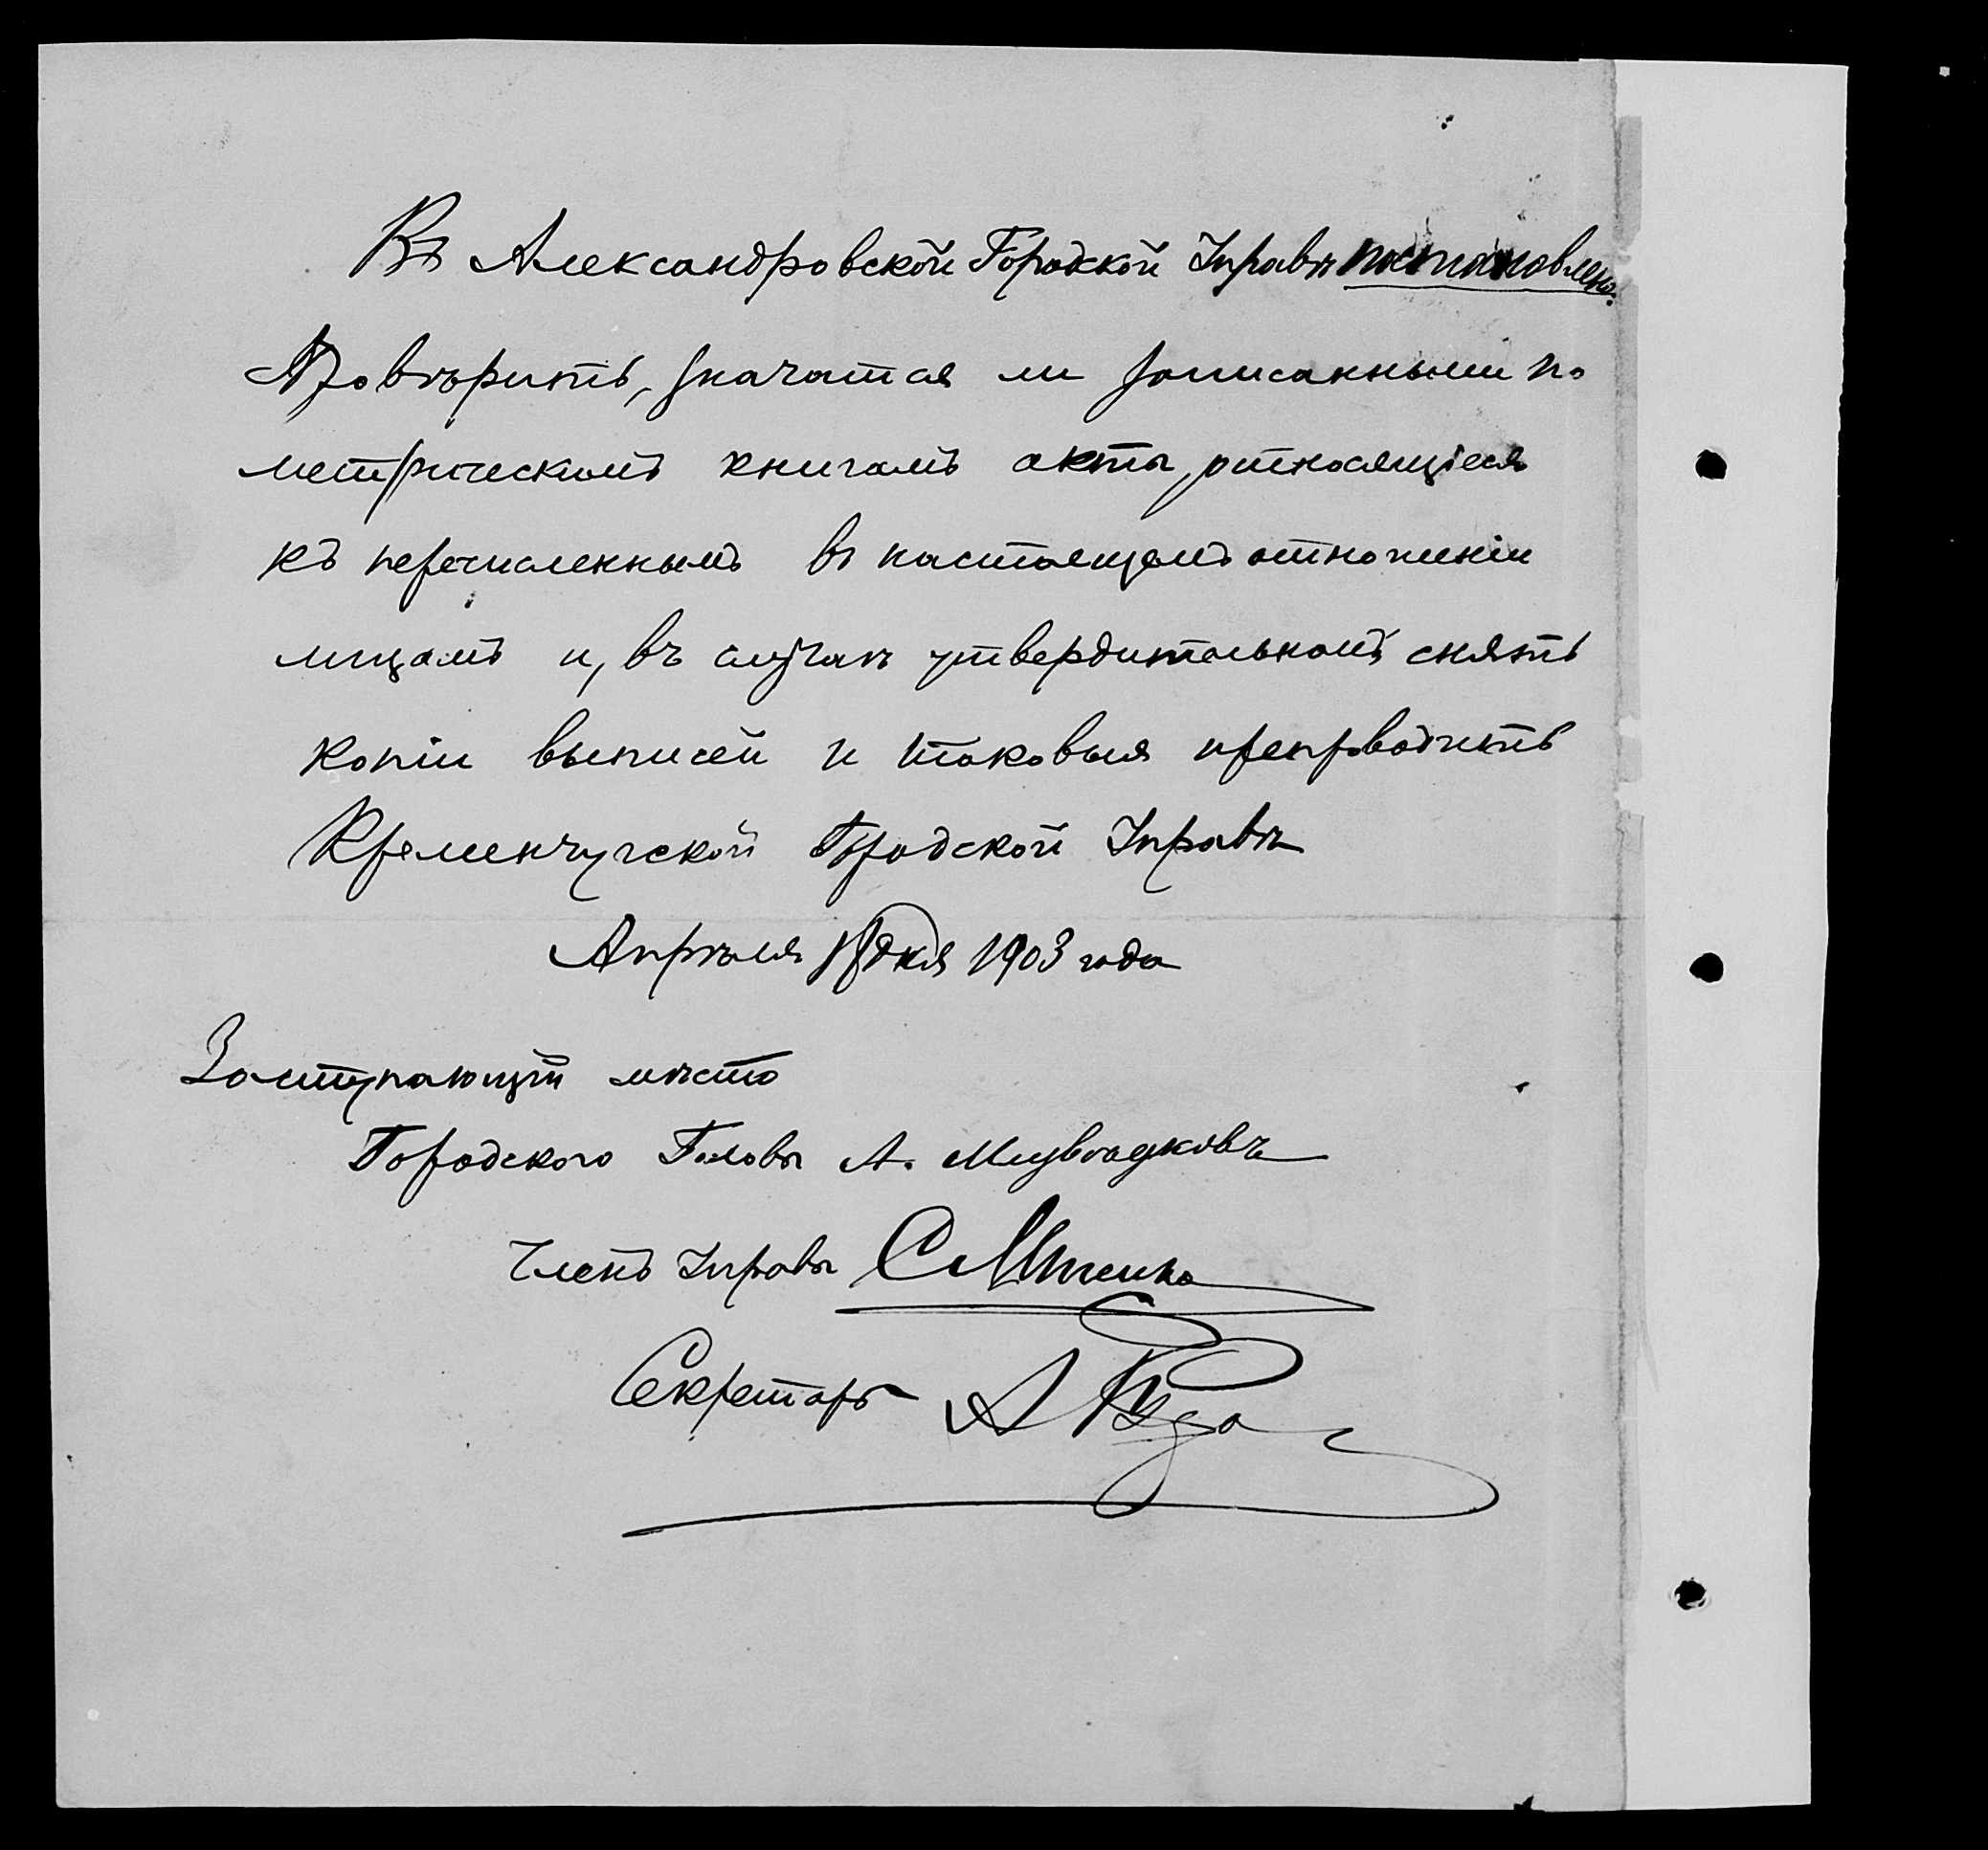 Въ Александровской Городской Управѣ постановлено:
Провѣрить, значатся ли записанными по
метрическимъ книгамъ акты, относящіеся
къ перечисленнымъ въ настоящемъ отношеніи
лицамъ и, въ случаѣ утвердительномъ, снять
копіи выписей и таковыя препроводить
Кременчугской Городской Управѣ
Апрѣля 18 дня 1903 года
Заступающій мѣсто
Городского Головы А.
Членъ Управы
Секретарь А